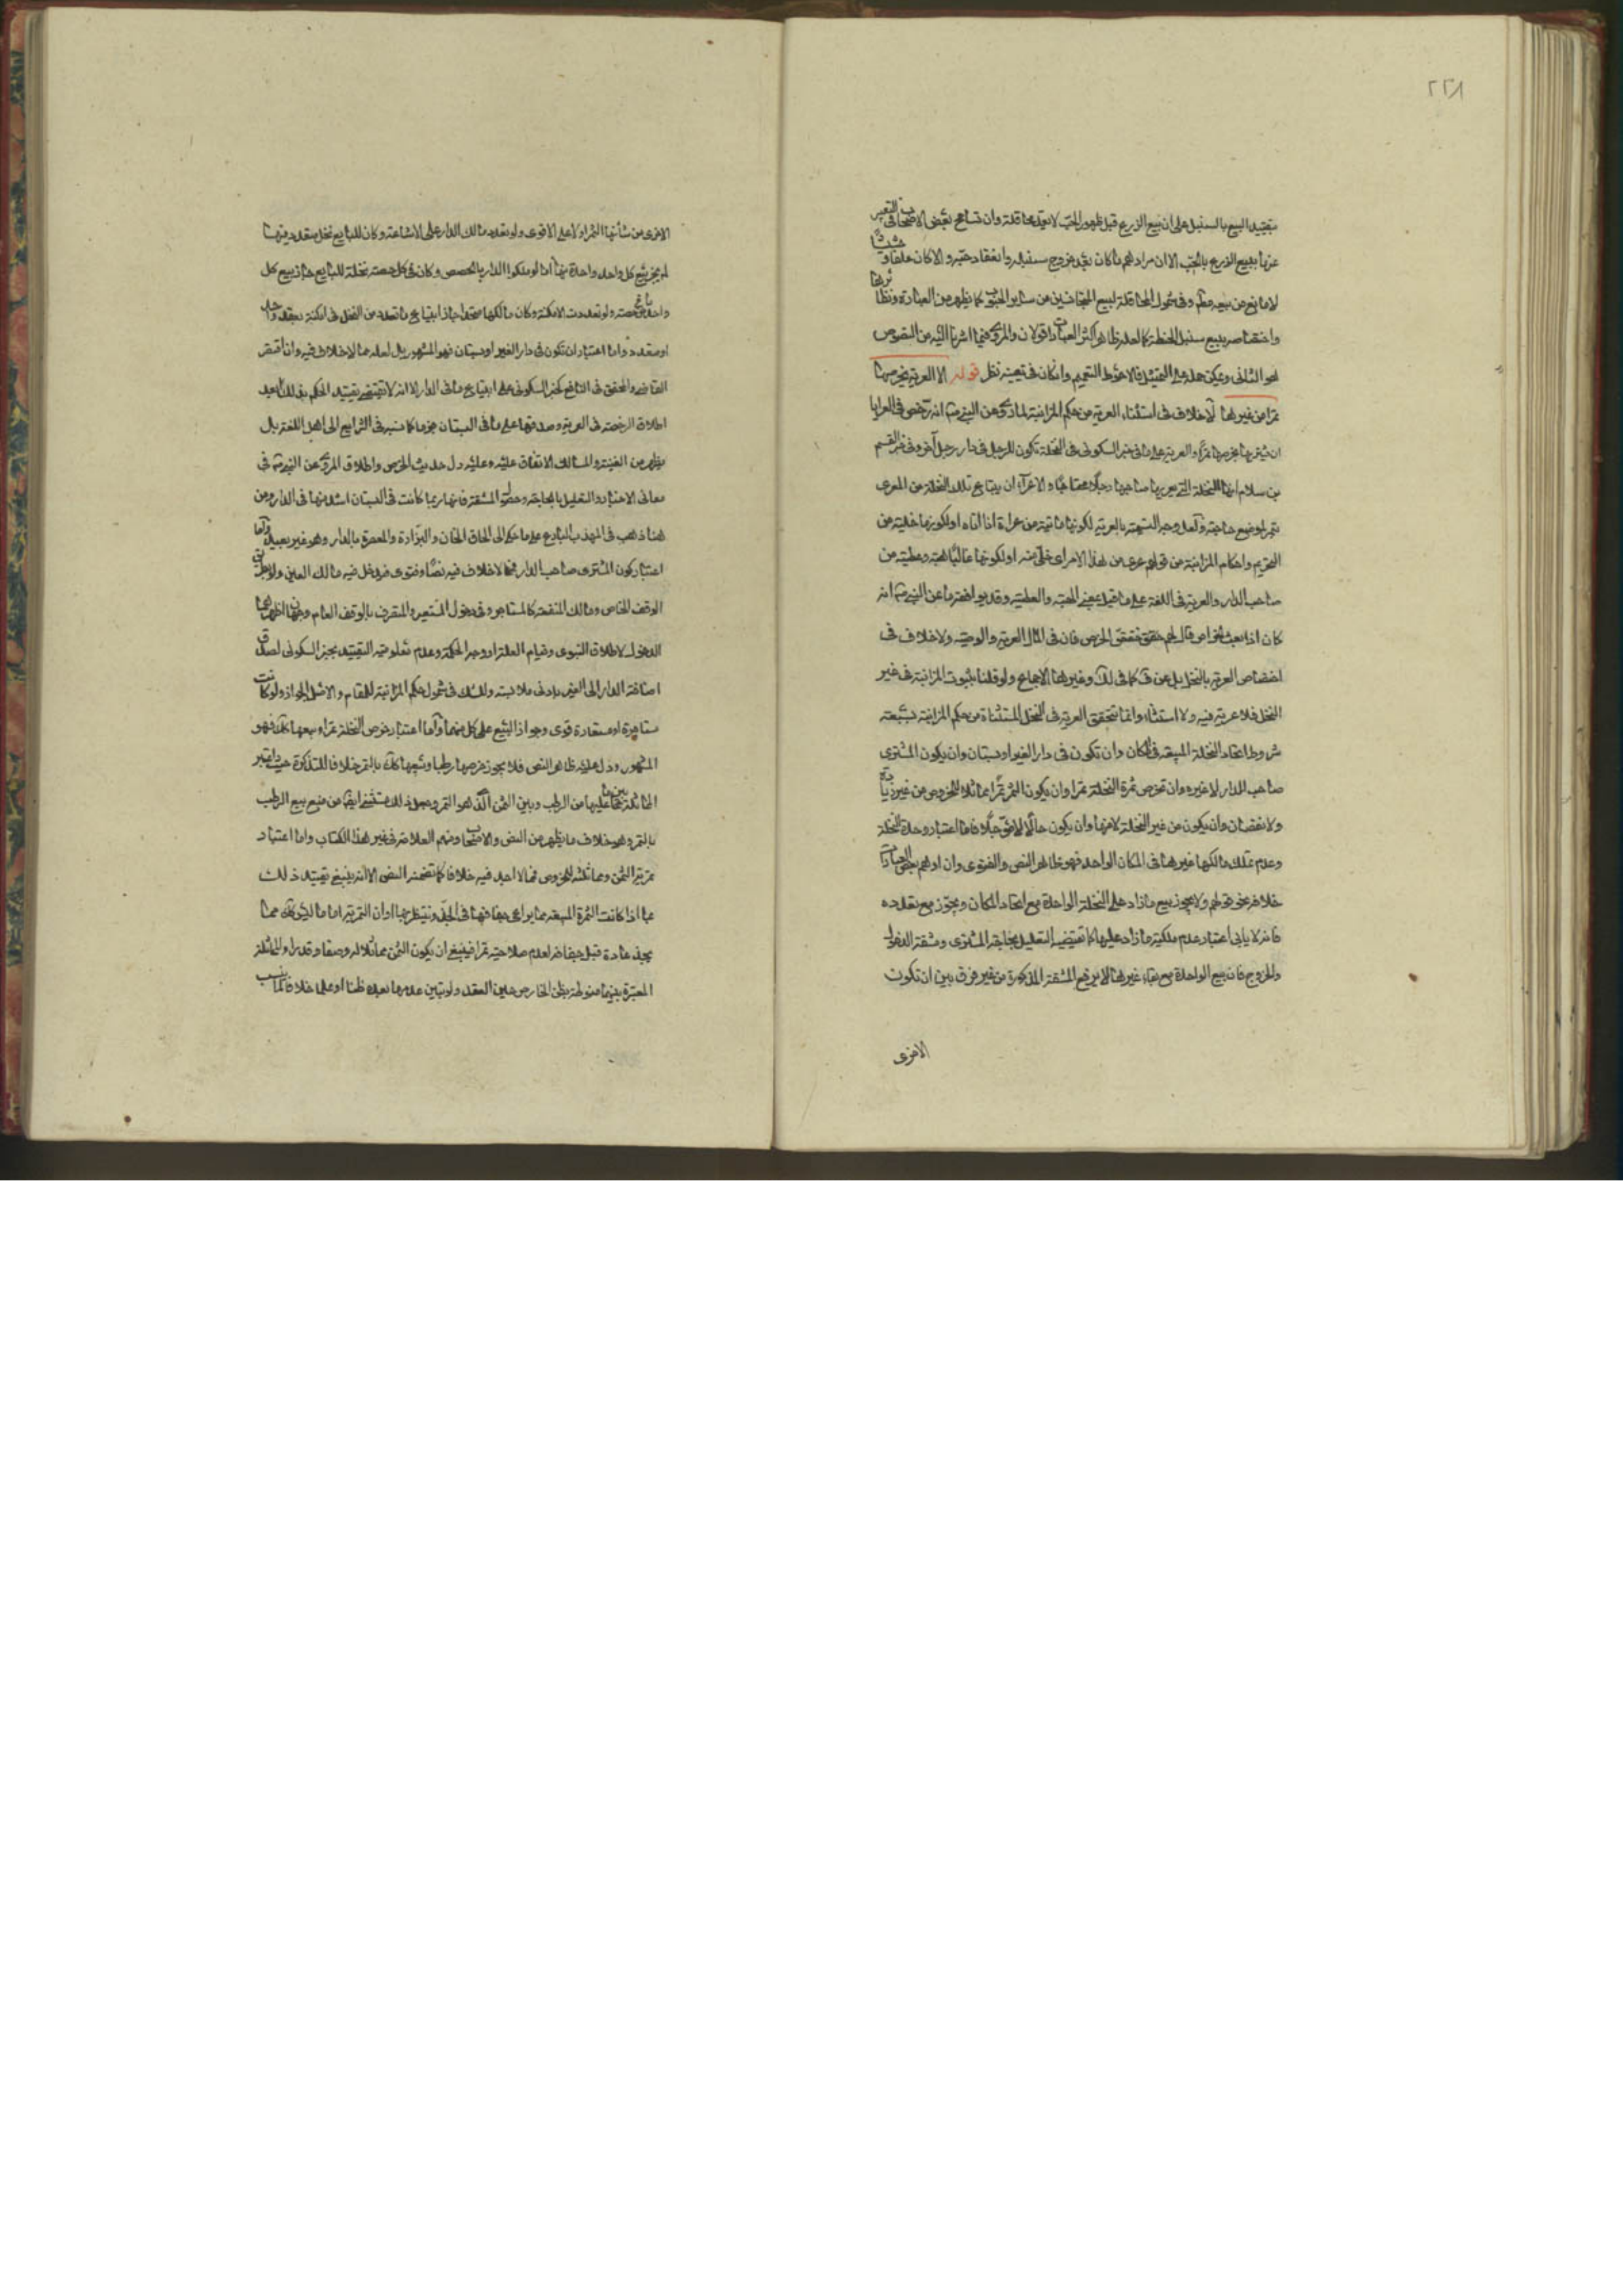 ٢٢٨
بتقييد البيع بالسنبل على ان بيع الزرع قبل ظهور الحب لا يعد محاقلة وان تسامح بعض الاصحاب في التعبير
عنها ببيع الزرع بالحب الا ان مرادهم ما كان بعد خروج سنبله وانعقاد حبه والا كان علفا و
لا مانع من بيعه مطلقا وفي شمول المحاقلة لبيع المتجانسين من ساير الحبوب كما يظهر من العبارة ونظائرها
واختصاصه ببيع سنبل الحنطة كما لعله ظاهر اكثر العبارات قولان والمروي فيما اشرنا اليه من النصوص
هو الثاني ويمكن حمله على التمثيل فالاحوط التعميم وان كان في تعيينه نظر قوله الا العرية بخرصها
تمرا من غيرها لا خلاف في استثناء العرية من حكم المزابنة لما روي عن النبي ص انه رخص في العرايا
ان تشترى بخرصها تمرا والعرية على ما في خبر السكوني هي النخلة تكون للرجل في دار رجل آخر وفي خبر القسم
بن سلام انها النخلة التي يعريها صاحبها رجلا محتاجا والاعراء ان يبتاع تلك النخلة من المعرى
بتمر لموضع حاجته ولعل وجه التسمية بالعرية لكونها ماتية من عراه اذا اتاه او لكونها خلية من
التحريم واحكام المزابنة من قولهم عري من هذا الامر اي خلي منه او لكونها غالبا هبة وعطية من
صاحب الدار والعرية في اللغة على ما قيل بمعنى الهبة والعطية وقد يوافقه ما عن النبي ص انه
كان اذا بعث الخراص قال لهم خففوا في الخرص فان في المال العرية والوصية ولا خلاف في
اختصاص العرية بالنخل بل عن كما في لك وغيرها الاجماع ولو قلنا بثبوت المزابنة في غير
النخل فلا عرية فيه ولا استثناء وانما تتحقق العرية في النخل المستثناة من حكم المزابنة بسبعة
شروط اتحاد النخلة المبيعة في المكان وان تكون في دار الغير او بستان وان يكون المشتري
صاحب الدار لا غيره وان تخرص ثمرة النخلة تمرا وان يكون الثمن تمرا مماثلا للخروص من غير زيادة
ولا نقصان وان يكون من غير النخلة لا منها وان يكون حالا لا مؤجلا فاما اعتبار وحدة النخلة
وعدم تملك مالكها غيرها في المكان الواحد فهو ظاهر النص والفتوى وان اوهم بعض العبارات
خلافه نحو قولهم ولا يجوز بيع ما زاد على النخلة الواحدة مع اتحاد المكان ويجوز مع تعدده
فانه لا يابى اعتبار عدم ملكية ما زاد عليها كما تقتضيه التعليل بحاجة المشتري ومشقة الدخول
والخروج فان بيع الواحدة مع بقاء غيرها لا يرفع المشقة المذكورة من غير فرق بين ان تكون
الاخرى
الاخرى من شأنها الثمر اولا على الاقوى ولو تعدد مالك الدار على الاشاعة وكان للبايع نخل متعدد فيها
لم يجز بيع كل واحد واحدة منها اما لو ملكوا الدار بالحصص وكان في كل حصة نخلة للبايع جاز بيع كل
واحد ما في حصته ولو تعددت الامكنة وكان مالكها متحدا جاز ابتياع ما تعدد من النخل في امكنة بعقد واحد
او متعدد واما اعتبار ان تكون في دار الغير او بستان فهو المشهور بل لعله مما لا خلاف فيه وان اقتصر
القاضي والمحقق في النافع كخبر السكوني على ابتياع ما في الدار الا انه لا تقتضي تقييد الحكم بذلك بعد
اطلاق الرخصة في العرية وصدقها على ما في البستان جزما كما نسبه في السرائر الى اهل اللغة بل
يظهر من الغنية والمسالك الاتفاق عليه وعليه دل حديث الخرص واطلاق المروي عن النبي ص في
معاني الاخبار والتعليل بالحاجة وحصول المشقة فانها ربما كانت في البستان اشد منها في الدار ومن
هنا ذهب في المهذب البارع على ما حكي الى الحاق الخان والبزارة والمعصرة بالدار وهو غير بعيد واما
اعتبار كون المشتري صاحب الدار فمما لا خلاف فيه نصا وفتوى فيدخل فيه مالك العين ولو بطريق
الوقف الخاص ومالك المنفعة كالمستاجر وفي دخول المستعير والمتصرف بالوقف العام وجهان اظهرهما
الدخول لاطلاق النبوي وقيام العلة او وجه الحكمة وعدم معلومية التقييد بخبر السكوني لصدق
اضافة الدار الى الغير بادنى ملابسة وللشك في شمول حكم المزابنة للمقام والاصل الجواز ولو كانت
مستاجرة او مستعارة قوى وجواز البيع على كل منهما واما اعتبار خرص النخلة تمرا وبيعها كذلك فهو
المشهور ودل عليه ظاهر النص فلا يجوز خرصها رطبا وبيعها كذلك بالتمر خلافا للتذكرة حيث اعتبر
المماثلة بين ما عليها من الرطب وبين الثمن الذي هو التمر وجعل ذلك مستثنى ايضا من منع بيع الرطب
بالتمر وهو خلاف ما يظهر من النص والاصحاب ومنهم العلامة في غير هذا الكتاب واما اعتبار
تمرية الثمن ومماثلته للخروص فمما لا اجد فيه خلافا كما تضمنه النص الا انه ينبغي تقييد ذلك
بما اذا كانت الثمرة المبيعة مما يراعى جفافها في الجذ وينتظر بها اوان التمرية اما ما ليس كذلك مما
يجذ عادة قبل جفافه لعدم صلاحيته تمرا فينبغي ان يكون الثمن مماثلا له وصفا وقدرا والمماثلة
المعتبرة بينهما منوطة بظن الخارص حين العقد ولو تبين عدمها بعده ظنا او علما خلافا